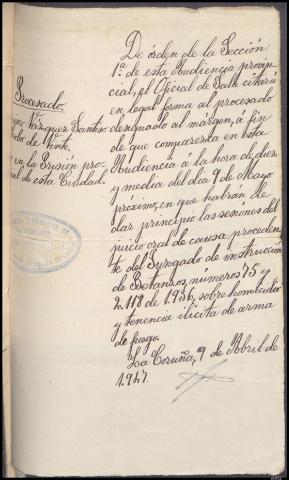 De orden de la Sección
1ª de esta Audiencia provin-
cial, el Oficial de Sala citará
en legal forma al procesado
designado al márgen, á fin
de que comparezca en esta
Audiencia á la hora de diez
y media del día 9 de Mayo
próximo, en que habrán de
dar principio las sesiones del
juicio oral de causa proceden-
te del Juzgado de instrucción
de Betanzos, números 75 y
2.118 de 1.936, sobre homicidio
y tenencia ilícita de arma
de fuego.
La Coruña, 9 de Abril de
1.947.
Procesado
Vázquez Santiso
de
en la Prisión pro-
al de esta Ciudad.